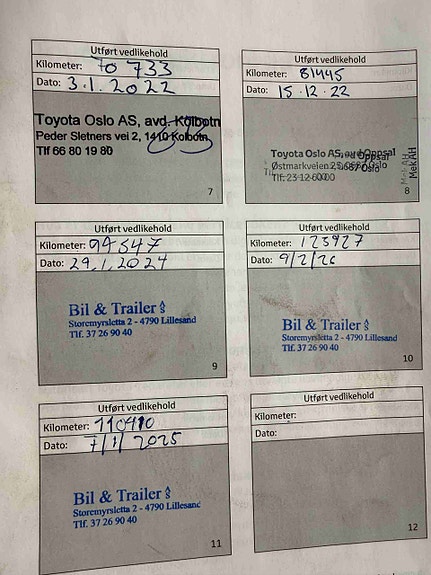 Utført vedlikehold
Kilometer: 70 733
Dato: 3.1.2022
Toyota Oslo AS, avd. Kolbotn
Peder Sletners vei 2, 1410 Kolbotn
Tlf 66 80 19 80
7
Utført vedlikehold
Kilometer: 81445
Dato: 15.12.22
Toyota Oslo AS, avd Oppsal
Østmarkveien 25, 0687 Oslo
Tlf. 23 12 60 00
MekAH
8
Utført vedlikehold
Kilometer: 94547
Dato: 29.1.2024
Bil & Trailer
Storemyrsletta 2 - 4790 Lillesand
Tlf. 37 26 90 40
9
Utført vedlikehold
Kilometer: 123927
Dato: 9/2/26
Bil & Trailer
Storemyrsletta 2 - 4790 Lillesand
Tlf. 37 26 90 40
10
Utført vedlikehold
Kilometer: 110410
Dato: 7/1/2025
Bil & Trailer
Storemyrsletta 2 - 4790 Lillesand
Tlf. 37 26 90 40
11
Utført vedlikehold
Kilometer:
Dato:
12